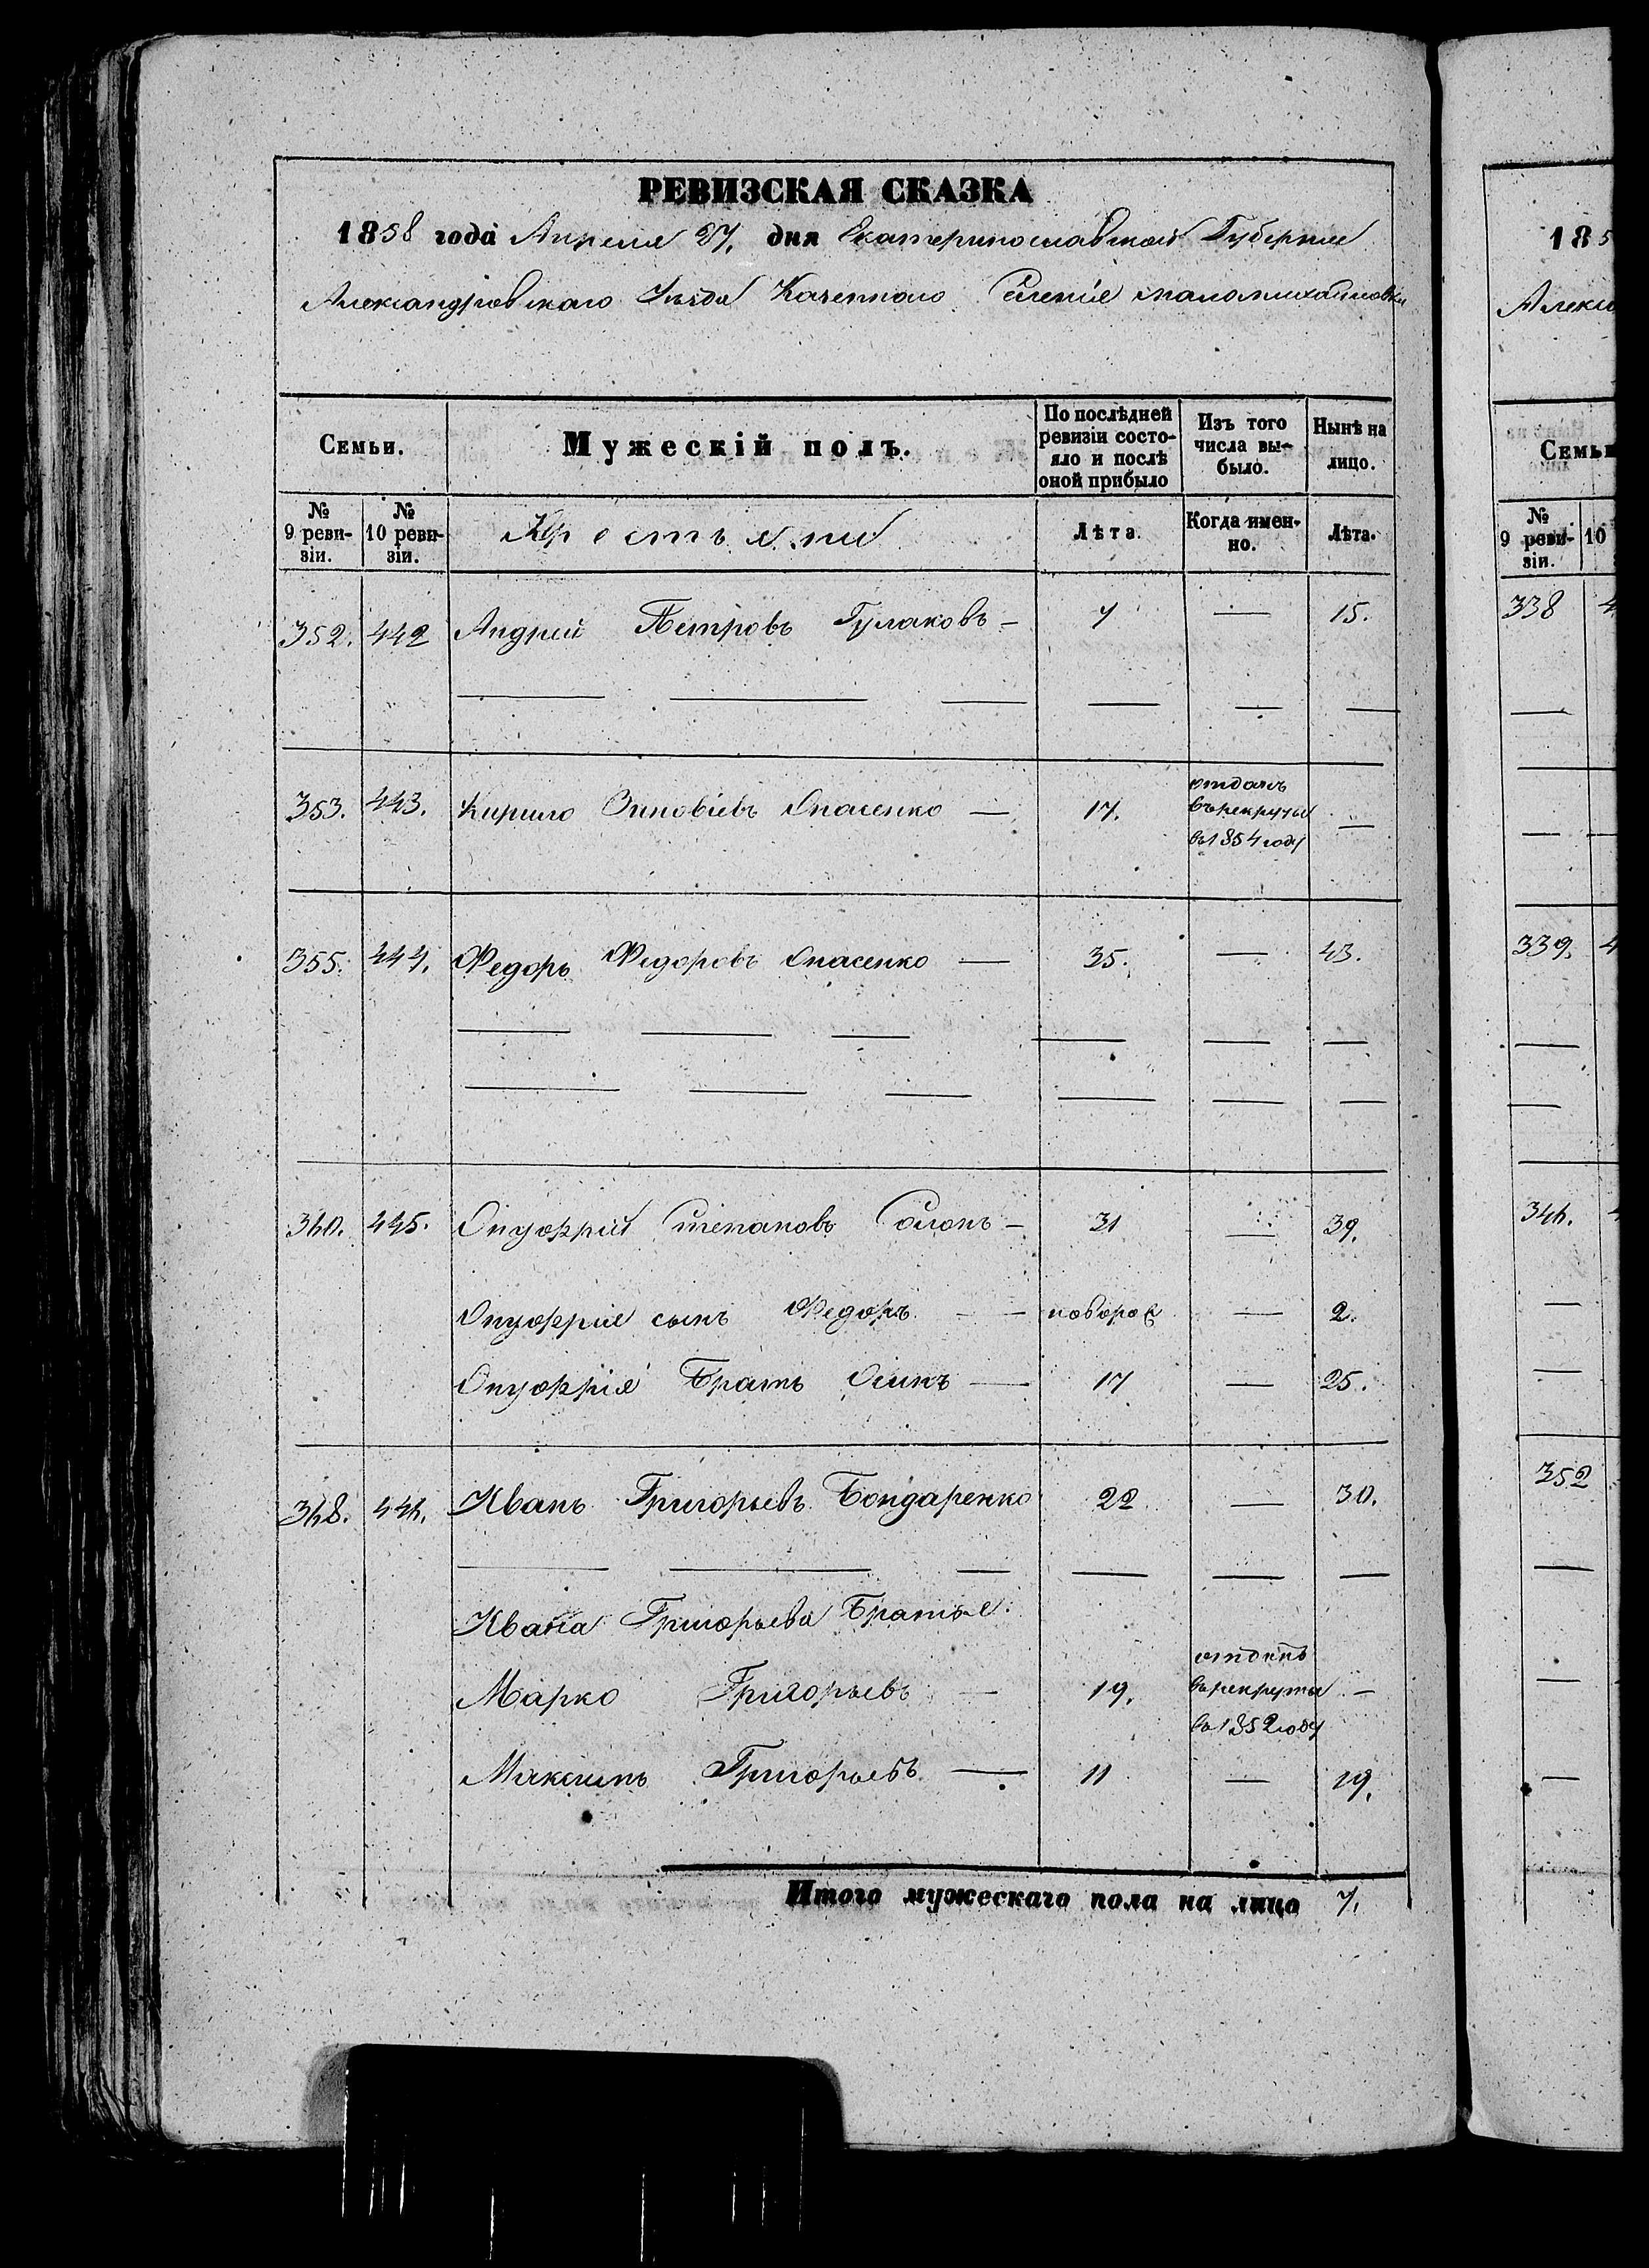 РЕВИЗСКАЯ СКАЗКА
1858 года Апреля 27. дня Екатеринославской Губернии
Александровскаго Уѣзда Казеннаго Селенія маломихайловки
Семьи.
Мужескій полъ.
По послѣдней ревизіи состояло и послѣ оной прибыло
Изъ того числа выбыло.
Нынѣ на лицо.
№ 9 ревизіи.
№ 10 ревизіи.
Крестьяне
Лѣта.
Когда именно.
Лѣта.
352. 442 Андрей Петровъ Гулаковъ — 7 — 15.
353. 443. Кирило Зиновіевъ Опасенко — 17. отданъ въ рекруты въ 1854 году —
355. 444. Федоръ Федоровъ Опасенко — 35. — 43.
360. 445. Онуфрій Степановъ Солопъ — 31 — 39.
Онуфрія сынъ Федоръ — новорож — 2.
Онуфрія Братъ Осипъ — 17 — 25.
368. 446. Иванъ Григорьевъ Бондаренко 22 — 30.
Ивана Григорьева Братья
Марко Григорьевъ — 19. отданъ въ рекрута въ 1852 году —
Максимъ Григорьевъ — 11 — 19.
Итого мужескаго пола на лицо 7.
185
Семьи
№ 9 ревизіи.
10
338
339.
346.
352